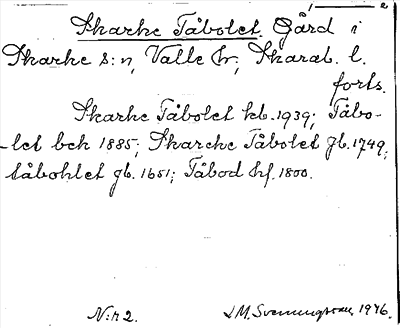 1 — 2
Skarke Tåbolet. Gård i
Skarke s:n, Valle hr, Skarab. l.
forts.
Skarke Tåbolet kb. 1939; Tåbo-
-let bck 1885; Skarcke Tåbolet jb. 1749;
tåbohlet jb. 1651; Tåbod hf. 1800.
N:r 2. I.M. Svenungsson, 1946.